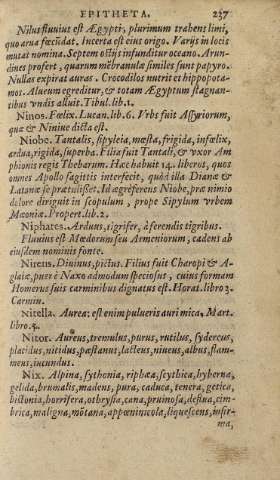 EPITHETA. 237
Nilus fluuius est Ægypti, plurimum trahens limi,
quo arua fœcũdat. Incerta est eius origo. Varijs in locis
mutat nomina. Septem ostijs infunditur oceano. Arun-
dines profert, quarum mẽbranulæ similes sunt papyro.
Nullas expirat auras. Crocodilos nutrit et hippopota-
mos. Alueum egreditur, & totam Ægyptum stagnan-
tibus vndis alluit. Tibul. lib. 1.
Ninos. Fœlix. Lucan. lib. 6. Vrbs fuit Assyriorum,
quæ & Niniue dicta est.
Niobe. Tantalis, sipyleia, mœsta, frigida, infœlix,
ardua, rigida, superba. Filia fuit Tantali, & vxor Am
phionis regis Thebarum. Hæc habuit 14. liberos, quos
omnes Apollo sagittis interfecit, quòd illa Dianæ &
Latonæ se prætulisset. Id ægrè ferens Niobe, præ nimio
dolore diriguit in scopulum, prope Sipylum vrbem
Mæoniæ. Propert. lib. 2.
Niphates. Arduus, tigrifer, à ferendis tigribus.
Fluuius est Mœdorum seu Armeniorum, cadens ab
eiusdem nominis fonte.
Nireus. Diuinus, pictus. Filius fuit Charopi & A-
glaiæ, puer è Naxo admodum speciosus, cuius formam
Homerus suis carminibus dignatus est. Horat. libro 3.
Carmin.
Nitella. Aurea: est enim pulueris auri mica. Mart.
libro 5.
Nitor. Aureus, tremulus, purus, rutilus, sydereus,
placidus, nitidus, pæstanus, lacteus, niueus, albus, flam-
meus, iucundus.
Nix. Alpina, sythonia, riphæa, scythica, hyberna,
gelida, brumalis, madens, pura, caduca, tenera, getica,
bistonia, horrifera, othrysia, cana, pruinosa, defluа, cim-
brica, maligna, mõtana, appœninicola, liquescens, infir-
ma,